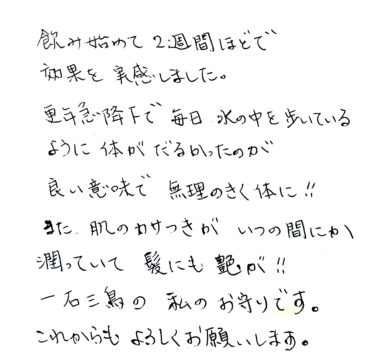 飲み始めて2週間ほどで
効果を実感しました。
更年急降下で毎日水の中を歩いている
ように体がだるかったのが
良い意味で無理のきく体に!!
また、肌のカサつきがいつの間にか
潤っていて髪にも艶が!!
一石三鳥の私のお守りです。
これからもよろしくお願いします。